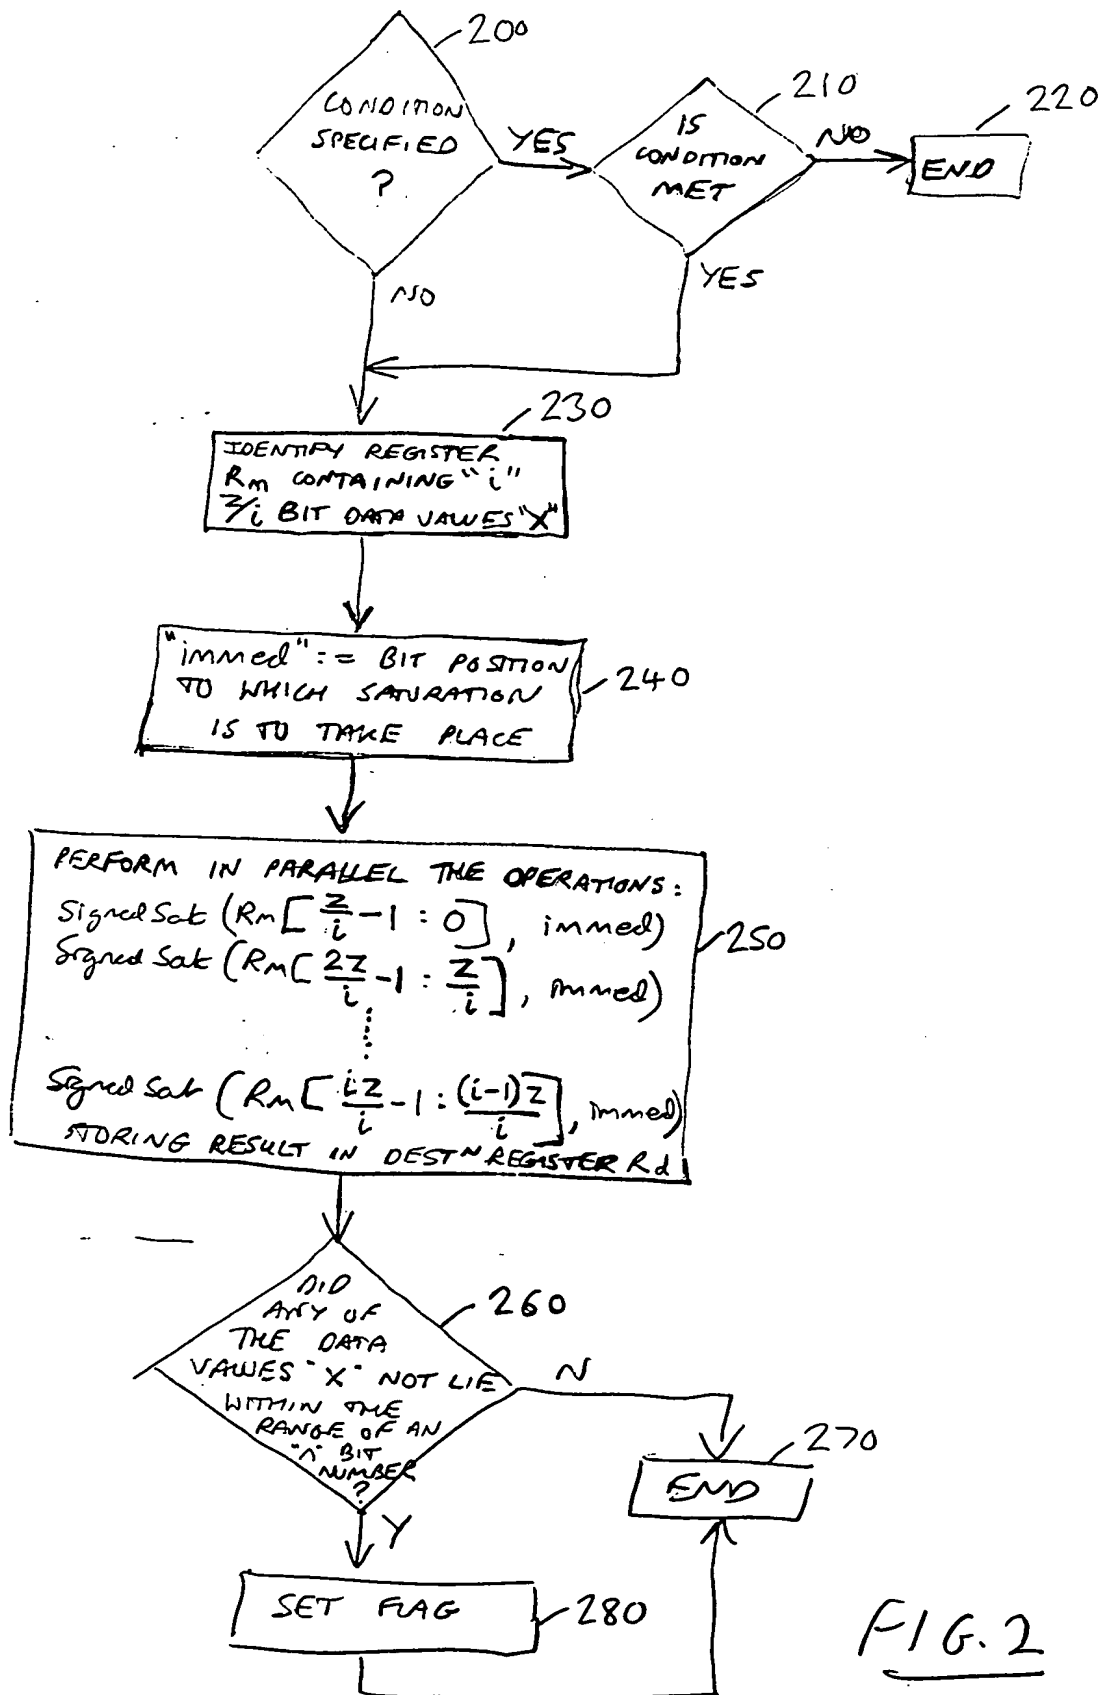 200
CONDITION
SPECIFIED
?
YES
NO
210
IS
CONDITION
MET
NO
YES
220
END
230
IDENTIFY REGISTER
Rm CONTAINING "i"
Z/i BIT DATA VALUES "X"
"immed" := BIT POSITION
TO WHICH SATURATION
IS TO TAKE PLACE
240
PERFORM IN PARALLEL THE OPERATIONS:
Signed Sat (Rm[Z/i-1 : 0], immed)
Signed Sat (Rm[2Z/i-1 : Z/i], immed)
Signed Sat (Rm[iZ/i-1 : (i-1)Z/i], immed)
STORING RESULT IN DESTN REGISTER Rd
250
DID
ANY OF
THE DATA
VALUES "X" NOT LIE
WITHIN THE
RANGE OF AN
"n" BIT
NUMBER
?
260
N
Y
270
END
SET FLAG
280
FIG. 2